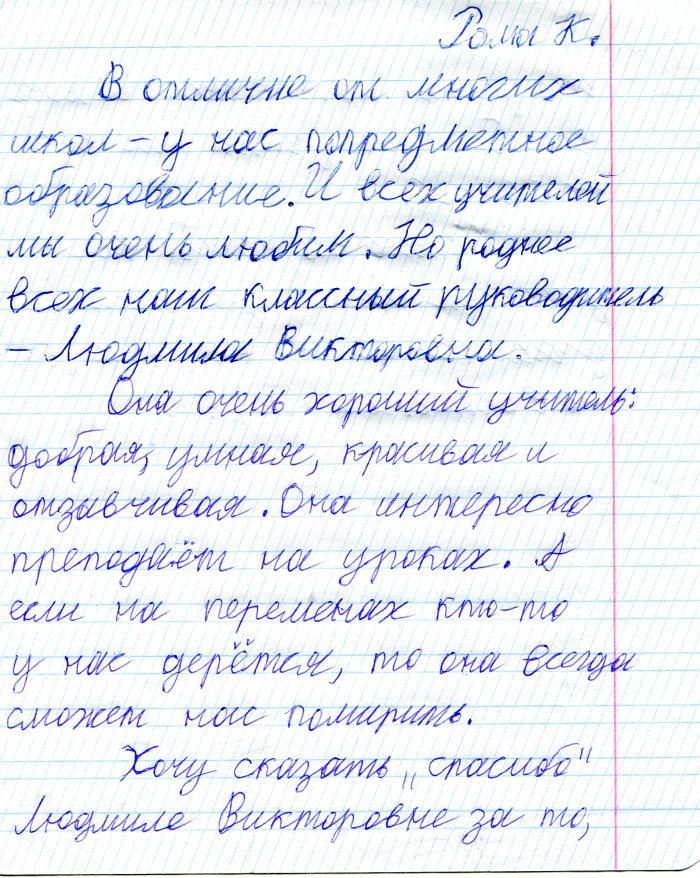 Рома К.
В отличие от многих
школ - у нас попредметное
образование. И всех учителей
мы очень любим. Но роднее
всех наш классный руководитель
- Людмила Викторовна.
Она очень хороший учитель:
добрая, умная, красивая и
отзывчивая. Она интересно
преподаёт на уроках. А
если на переменах кто-то
у нас дерётся, то она всегда
сможет нас помирить.
Хочу сказать „спасибо"
Людмиле Викторовне за то,